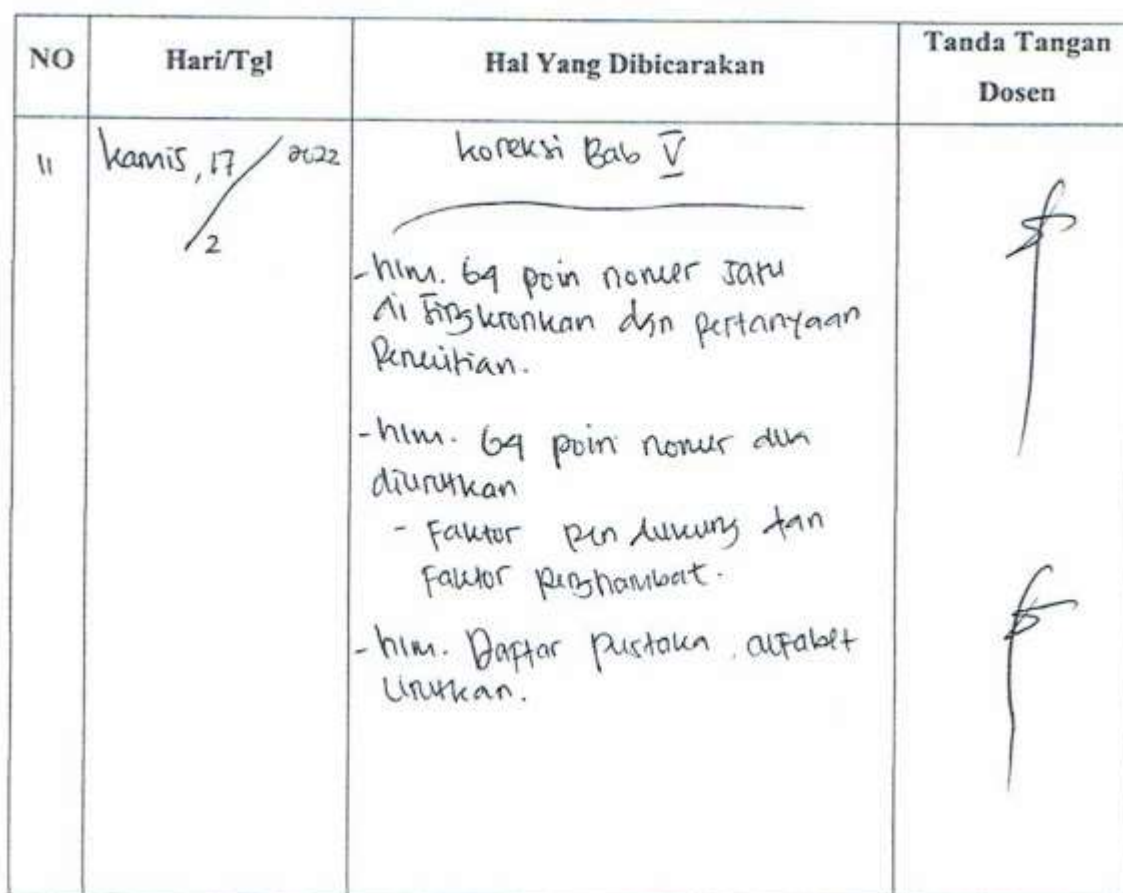 NO Hari/Tgl Hal Yang Dibicarakan Tanda Tangan Dosen
11 kamis, 17/2 2022 koreksi Bab V
- hlm. 64 poin nomer satu
di singkronkan dgn pertanyaan
Penelitian.
- hlm. 64 poin nomer dua
diurutkan
- Faktor pendukung dan
Faktor penghambat.
- hlm. Daftar pustaka alfabet
Urutkan.